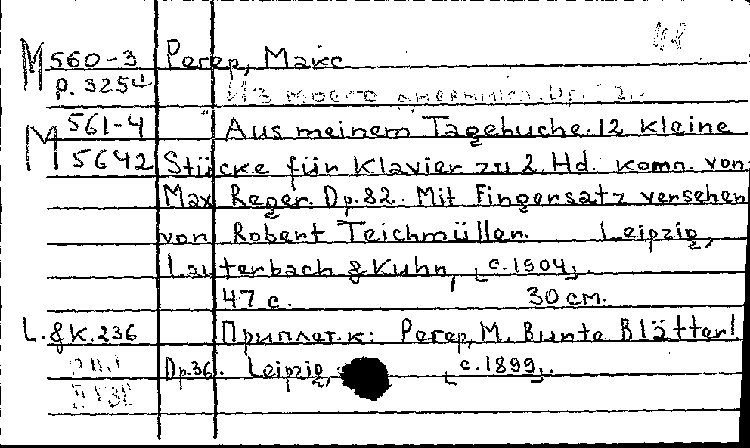 М 560-3 Регер, Макс
р. 3254
Из моего дневника. Op.
М 561-4 Aus meinem Tagebuche. 12 kleine
5642 Stücke für Klavier zu 2. Hd. komp. von
Max Reger. Op. 82. Mit Fingersatz versehen
von Robert Teichmüller. Leipzig,
Lauterbach & Kuhn, [c. 1904].
47 с. 30 см.
L. & K. 236 Приплет. к: Регер, М. Bunte Blätter!
Op. 36. Leipzig, [c. 1899].